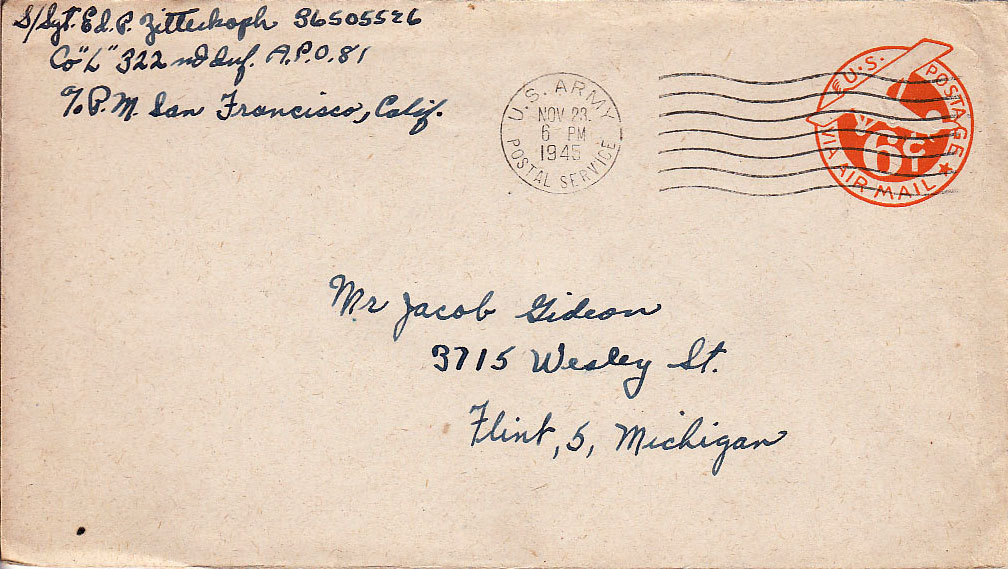 S/Sgt. Ed. P. Zitterkoph 36505526
Co "L" 322 nd Inf. A.P.O. 81
c/o P.M. San Francisco, Calif.
U.S. ARMY
NOV 23.
6 PM
1945
POSTAL SERVICE
U.S. POSTAGE
6¢
VIA AIR MAIL
Mr Jacob Gideon
3715 Wesley St.
Flint, 5, Michigan